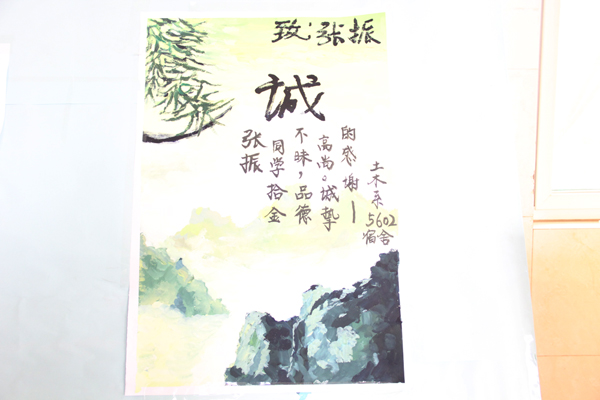 致:张振
诚
张振
同学拾金
不昧,品德
高尚。城挚
的感谢—
土木系
5602
宿舍